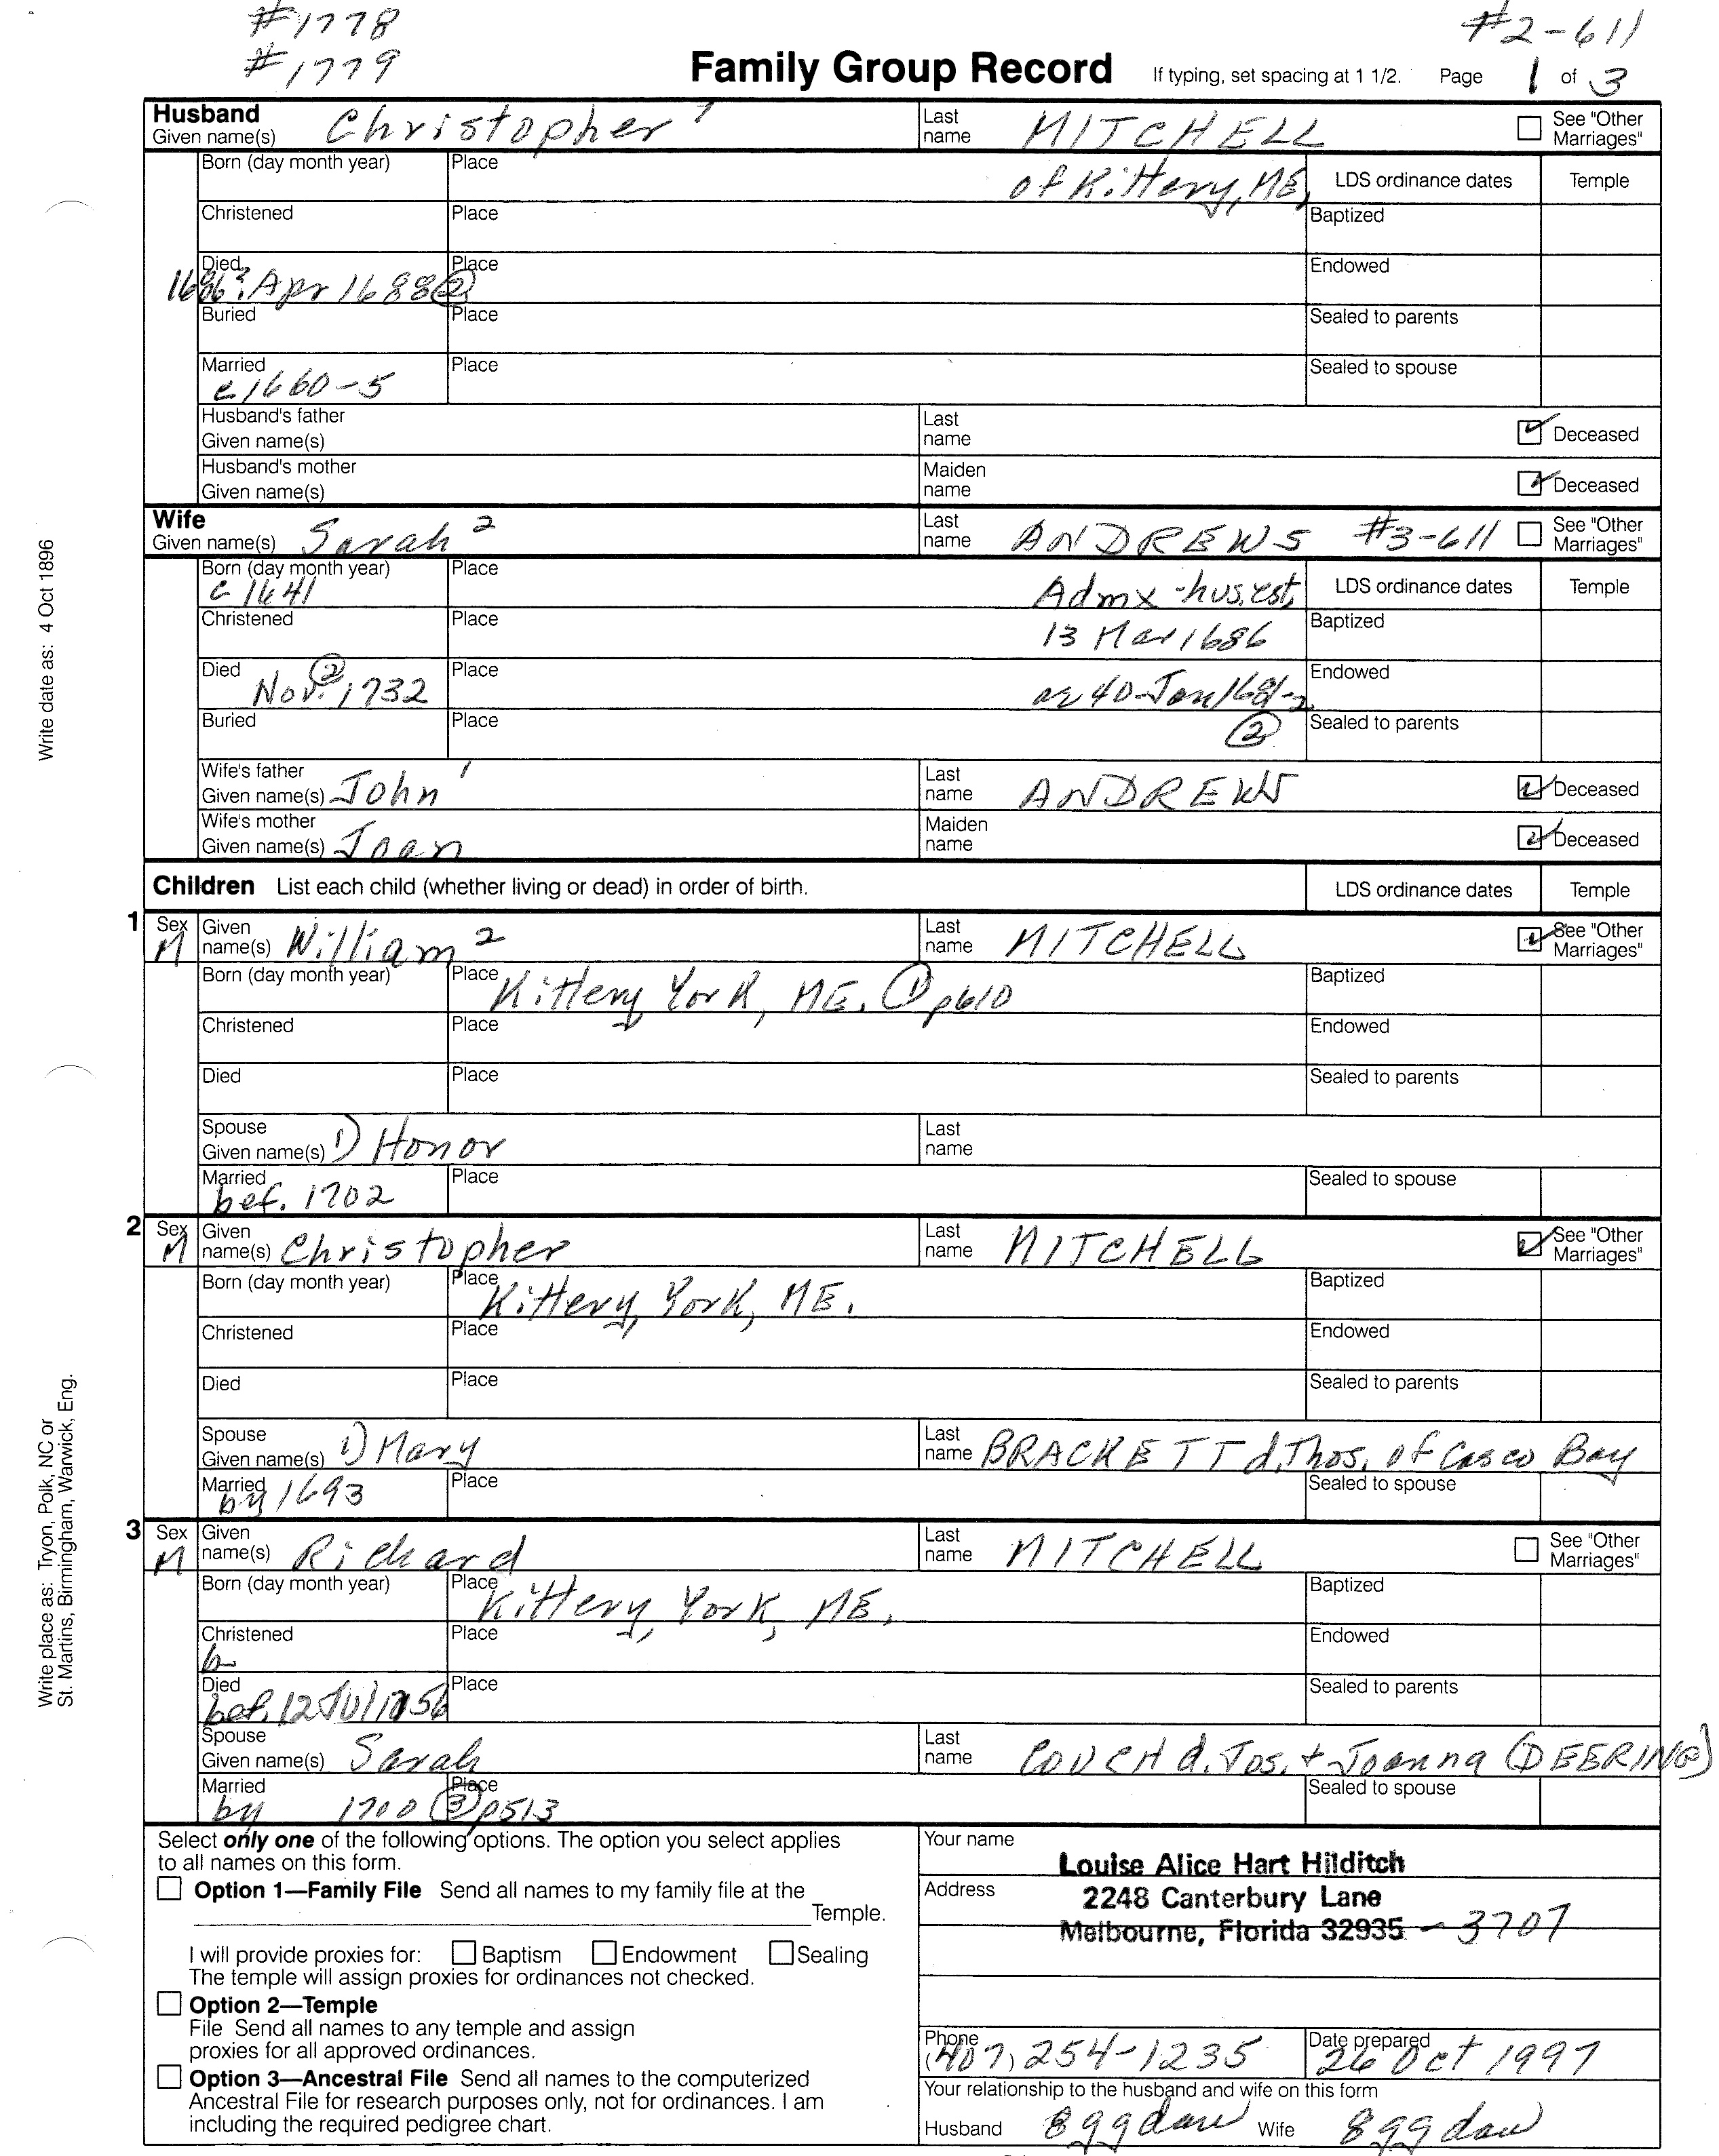 #1778
#2-611
#1779
Family Group Record If typing, set spacing at 1 1/2. Page 1 of 3
Husband
Given name(s) Christopher 1 Last name MITCHELL See "Other Marriages"
Born (day month year) Place of Kittery, ME, LDS ordinance dates Temple
Christened Place Baptized
Died 1686? Apr 1688 ② Place Endowed
Buried Place Sealed to parents
Married c 1660-5 Place Sealed to spouse
Husband's father
Given name(s) Last name Deceased
Husband's mother
Given name(s) Maiden name Deceased
Wife
Given name(s) Sarah 2 Last name ANDREWS #3-611 See "Other Marriages"
Born (day month year) c 1641 Place Admx-hus. est, LDS ordinance dates Temple
Christened Place 13 Mar 1686 Baptized
Died Nov. ② 1732 Place ae 40-Jan 1681-2 Endowed
Buried Place ② Sealed to parents
Wife's father
Given name(s) John 1 Last name ANDREW Deceased
Wife's mother
Given name(s) Joan Maiden name Deceased
Children List each child (whether living or dead) in order of birth. LDS ordinance dates Temple
1 Sex M Given name(s) William 2 Last name MITCHELL See "Other Marriages"
Born (day month year) Place Kittery York, ME. ① p610 Baptized
Christened Place Endowed
Died Place Sealed to parents
Spouse
Given name(s) 1) Honor Last name
Married bef. 1702 Place Sealed to spouse
2 Sex M Given name(s) Christopher Last name MITCHELL See "Other Marriages"
Born (day month year) Place Kittery, York, ME. Baptized
Christened Place Endowed
Died Place Sealed to parents
Spouse
Given name(s) 1) Mary Last name BRACKETT d. Thos. of Casco Bay
Married by 1693 Place Sealed to spouse
3 Sex M Given name(s) Richard Last name MITCHELL See "Other Marriages"
Born (day month year) Place Kittery, York, ME. Baptized
Christened Place Endowed
Died bef. 12 Jul 1756 Place Sealed to parents
Spouse
Given name(s) Sarah Last name COUCH d. Jos. + Joanna (DEERING)
Married by 1700 ③ p513 Place Sealed to spouse
Select only one of the following options. The option you select applies
to all names on this form.
Option 1—Family File Send all names to my family file at the
Temple.
I will provide proxies for: Baptism Endowment Sealing
The temple will assign proxies for ordinances not checked.
Option 2—Temple
File Send all names to any temple and assign
proxies for all approved ordinances.
Option 3—Ancestral File Send all names to the computerized
Ancestral File for research purposes only, not for ordinances. I am
including the required pedigree chart.
Your name Louise Alice Hart Hilditch
Address 2248 Canterbury Lane
Melbourne, Florida 32935 - 3707
Phone (407) 254-1235 Date prepared 26 Oct 1997
Your relationship to the husband and wife on this form
Husband 8 gg dau Wife 8 gg dau
Write date as: 4 Oct 1896
Write place as: Tryon, Polk, NC or
St. Martins, Birmingham, Warwick, Eng.